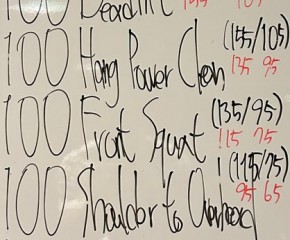 100 Deadlift
100 Hang Power Clean (155/105)
135 95
100 Front Squat (135/95)
115 75
100 Shoulder to Overhead (115/75)
95 65